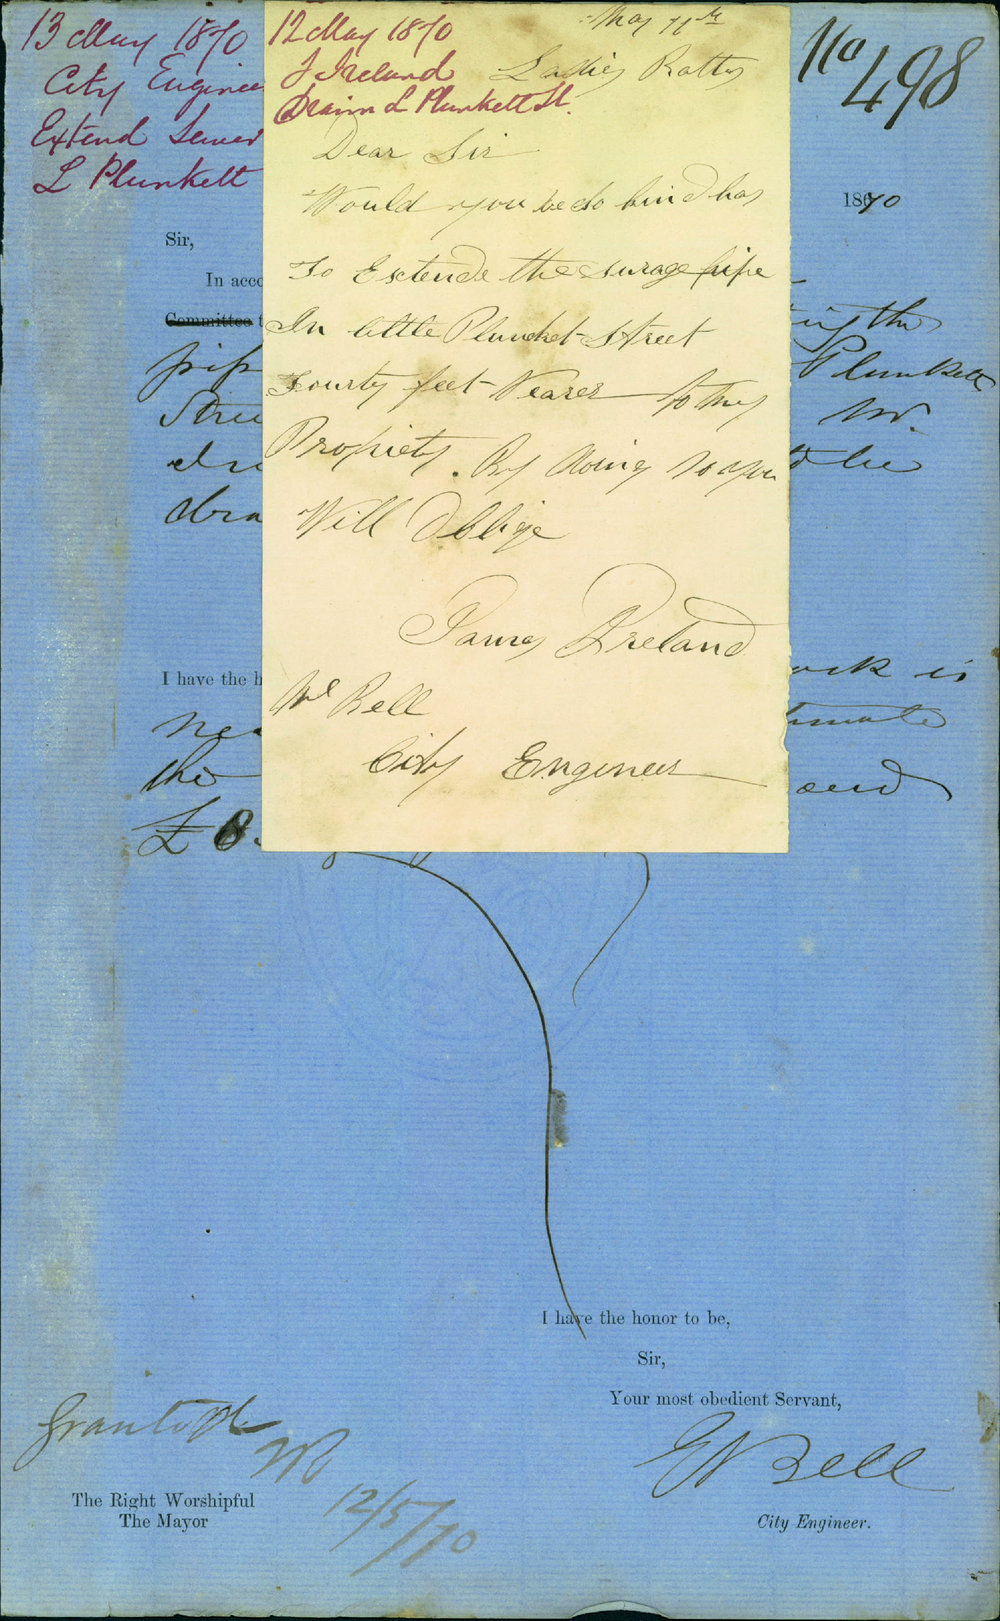 13 May 1870
City Enginee
Extend Sewer
L Plunkett
12 May 1870
J Ireland
Drain L Plunkett St.
No 498
May 11th
Ladies Rattry
Dear Sir
Would you be so kind has
To Extende the surage pipe
In little Plunchet Street
Fourty feet Nearer to my
Propiety. By doing so you
Will Oblige
James Ireland
Mr Bell
City Engineer
1870
Sir,
In acco
Committee t
ing the
pip
Plunkett
Stree
Mr.
dra
I have the h
ork is
nec
timate
the
and
£ 8.
I have the honor to be,
Sir,
Your most obedient Servant,
E Bell
City Engineer.
Granted
The Right Worshipful
The Mayor
12/5/70